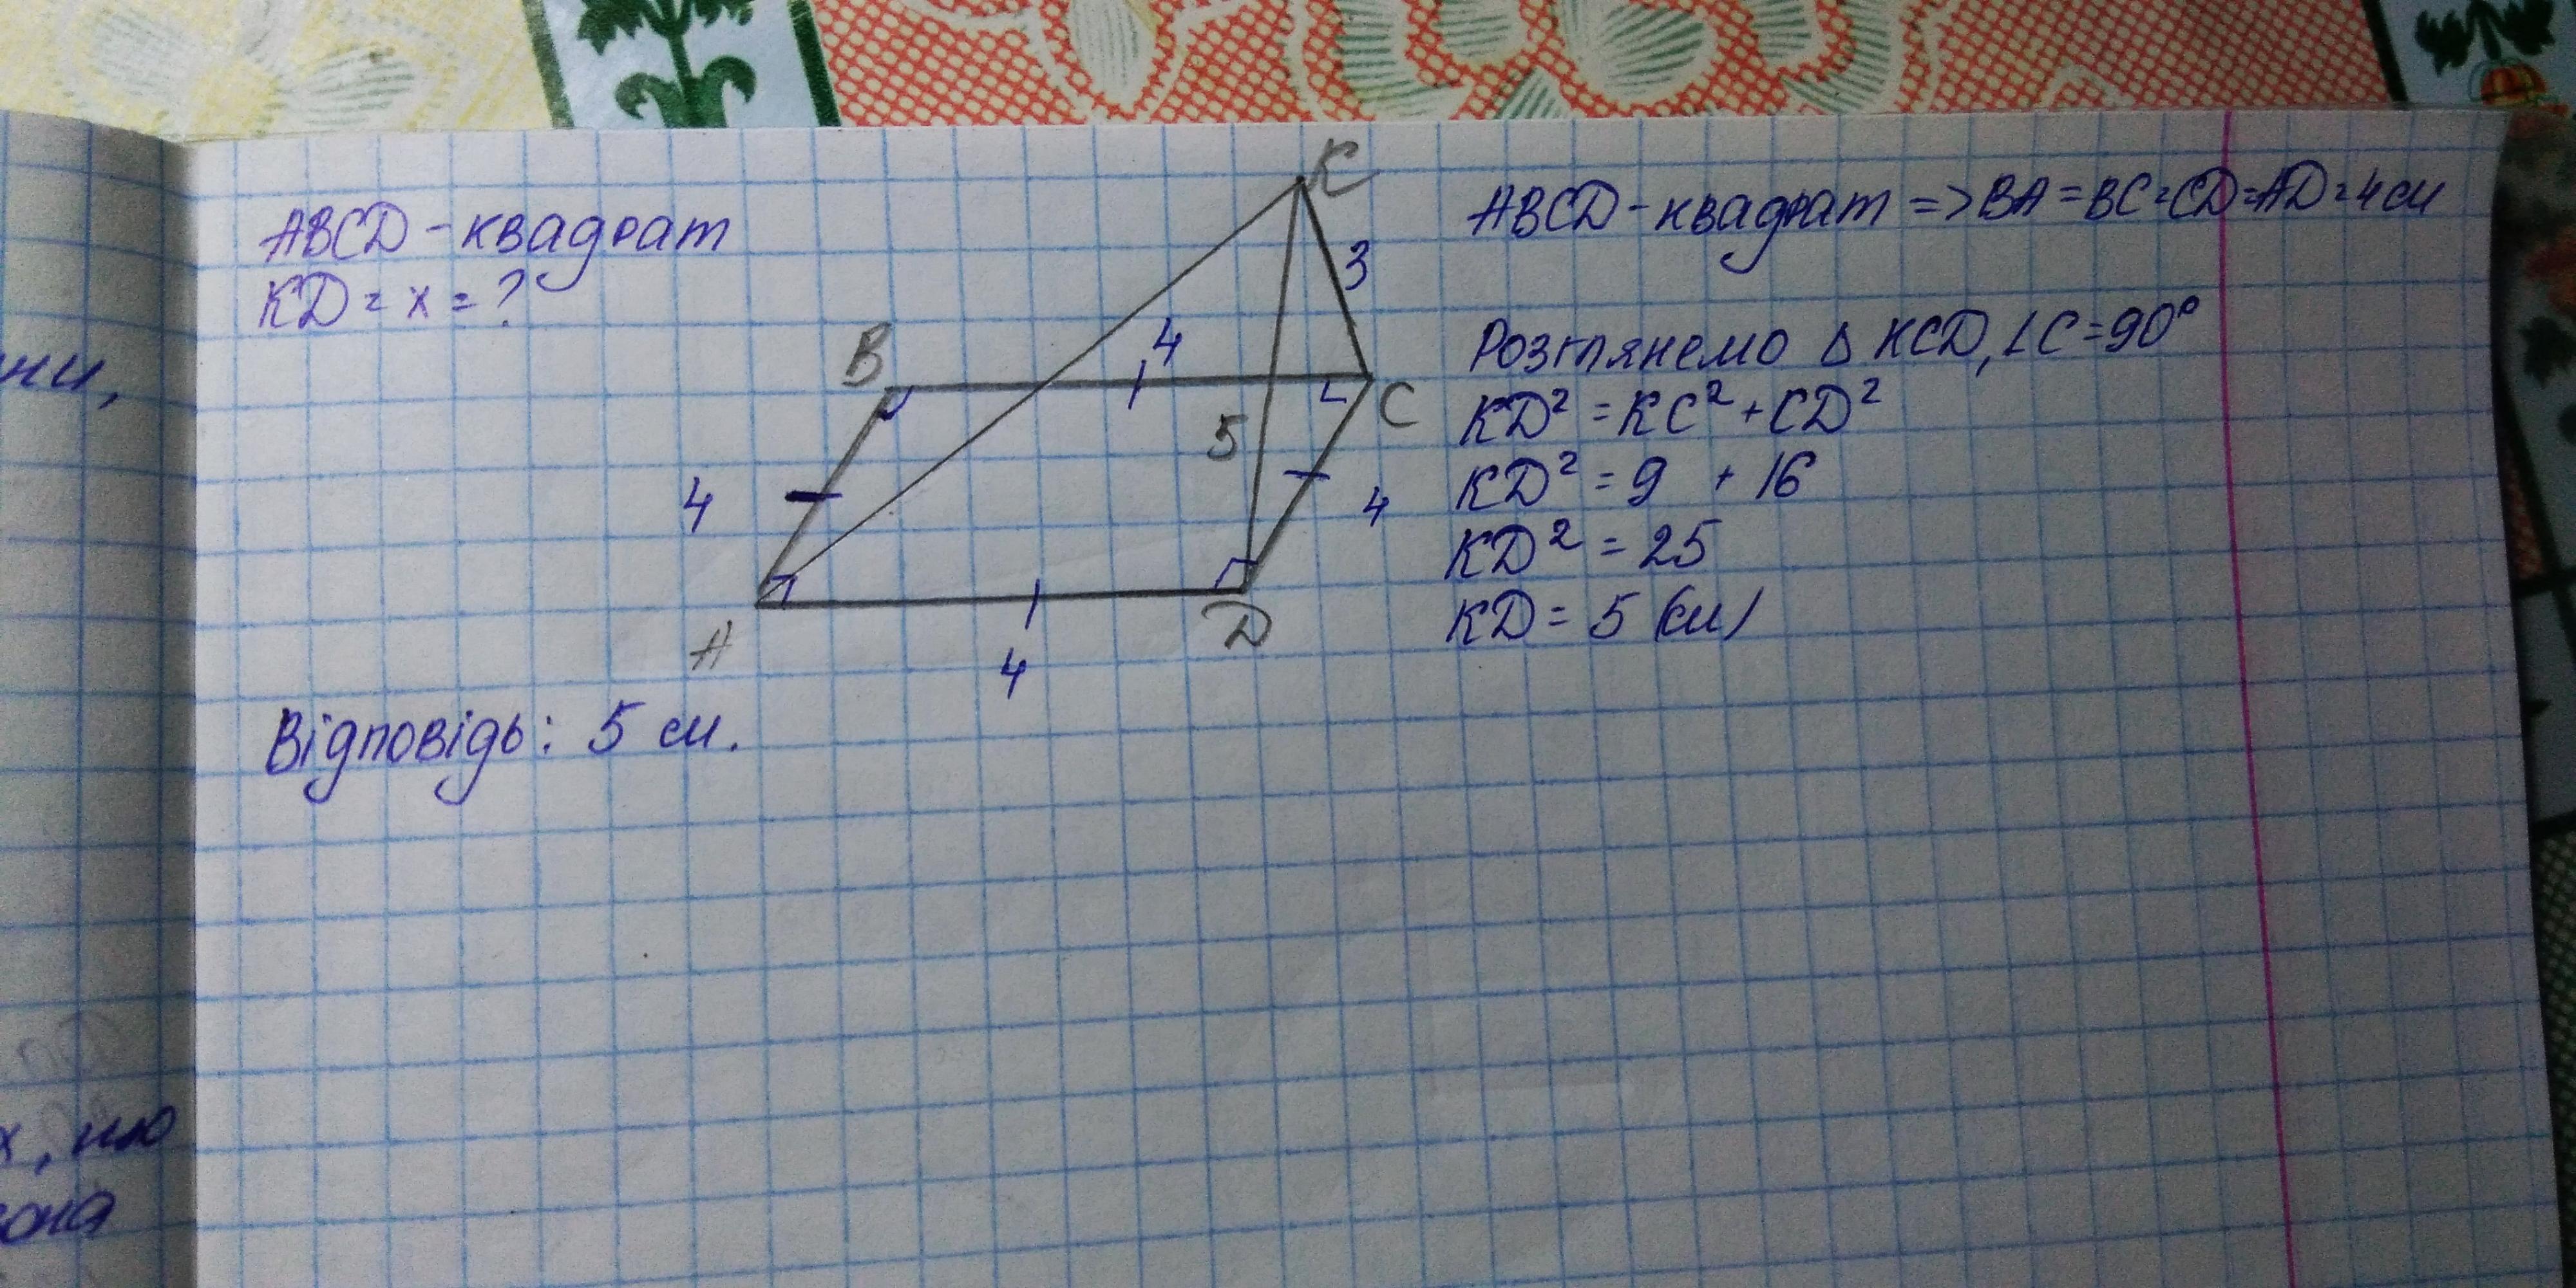 ABCD - квадрат
KD = x = ?
K
3
B
4
C
5
4
4
A
D
4
ABCD - квадрат => BA = BC = CD = AD = 4 см
Розглянемо Δ KCD, ∠C = 90°
KD² = KC² + CD²
KD² = 9 + 16
KD² = 25
KD = 5 (см)
Відповідь: 5 см.